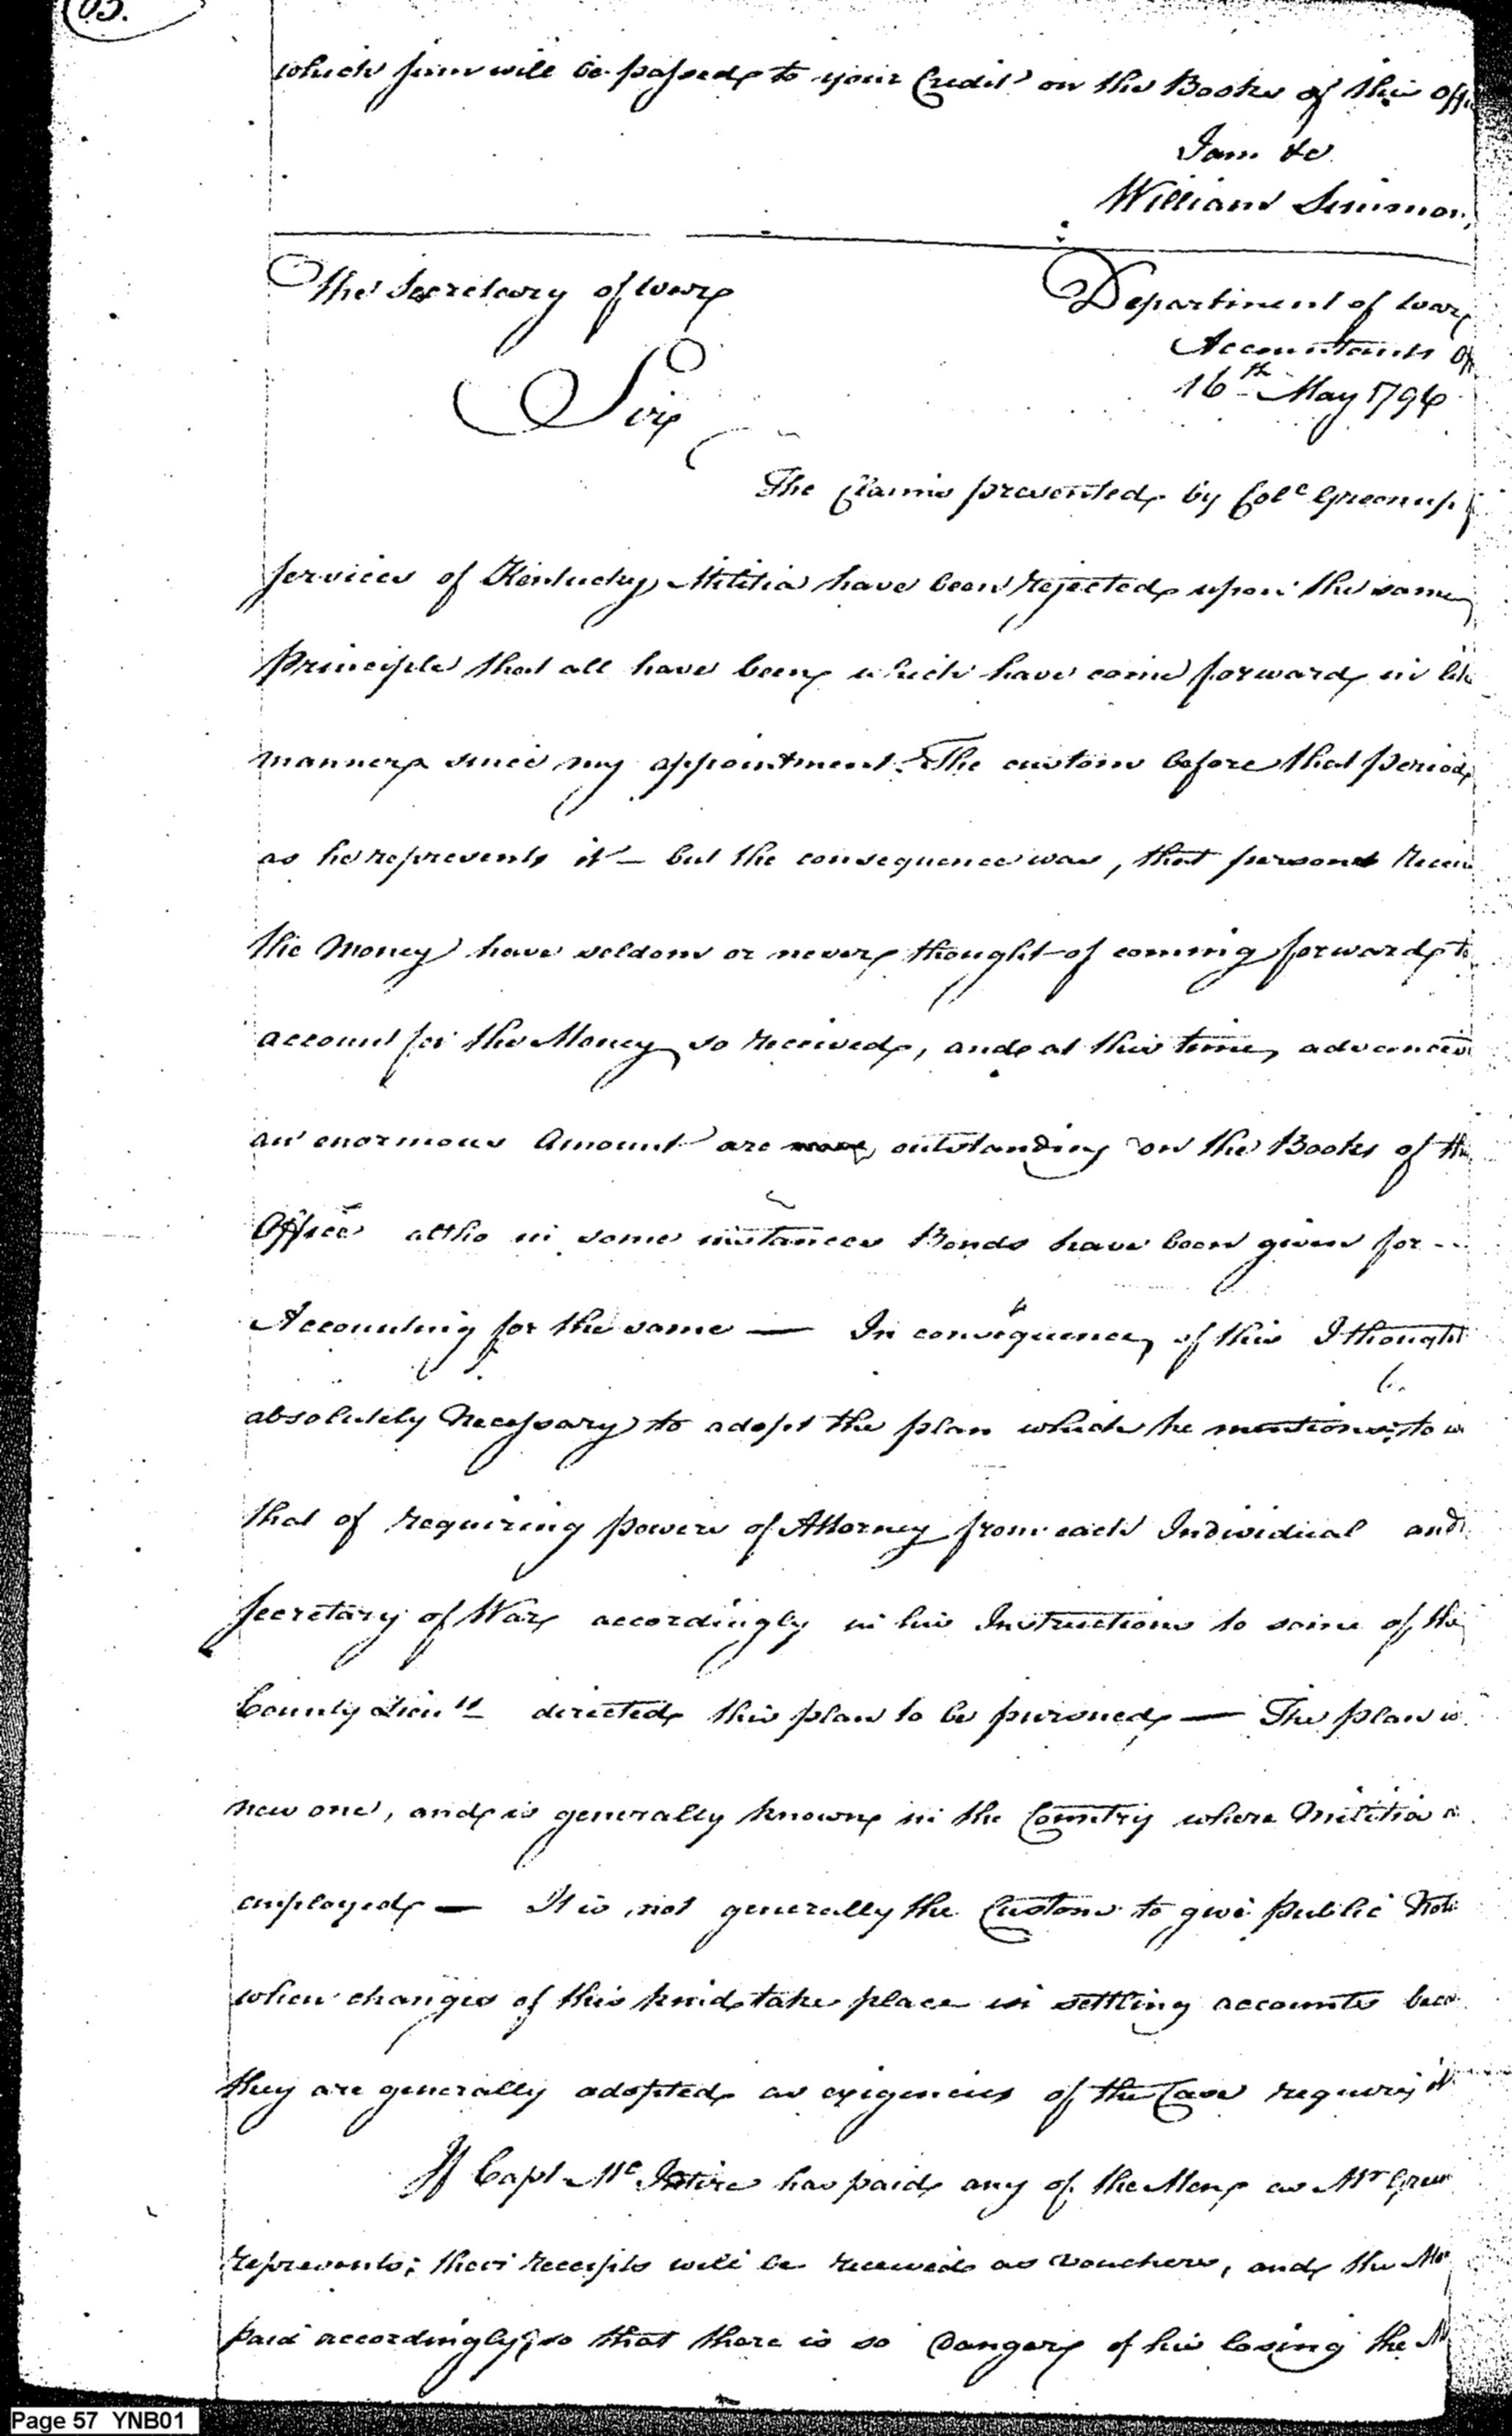 which sum will be passed to your Credit on the Books of this Offi
I am &c
William Simmon
The Secretary of War
Department of War
Accountants Of
16th May 1794
Sir
The Claims presented by Colo Greenup f
services of Kentucky Militia have been rejected upon the same
Principle that all have been which have come forward in lik
manner since my appointment. The custom before that period
as he represents it — but the consequence was, that persons receiv
the Money have seldom or never thought of coming forward to
account for the Money so received, and at this time advances
an enormous Amount are outstanding on the Books of th
Office altho in some instances Bonds have been given for --
Accounting for the same — In consequence of this I thought
absolutely Necessary to adopt the plan which he mentions; to w
that of requiring powers of Attorney from each Individual and
Secretary of War accordingly in his Instructions to some of the
County Lieuts directed this plan to be pursued — The plan is
new one, and is generally known in the Country where Militia a
employed — It is not generally the Custom to give public Noti
when changes of this kind take place in settling accounts beca
they are generally adopted as exigencies of the Case require it
If Capt McIntire has paid any of the Men as Mr Green
represents; their receipts will be received as vouchers, and the Mo
paid accordingly, so that there is so Danger of his losing the M
Page 57 YNB01